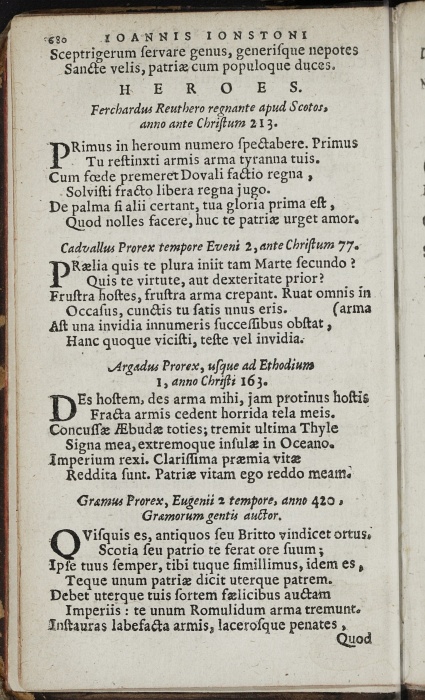 680 IOANNIS IONSTONI
Sceptrigerum ſervare genus, generiſque nepotes
Sancte velis, patriæ cum populoque duces.
HEROES.
Ferchardus Reuthero regnante apud Scotos,
anno ante Chriſtum 213.
PRimus in heroum numero ſpectabere. Primus
Tu reſtinxti armis arma tyranna tuis.
Cum fœde premeret Dovali factio regna,
Solviſti fracto libera regna jugo.
De palma ſi alii certant, tua gloria prima eſt,
Quod nolles facere, huc te patriæ urget amor.
Cadvallus Prorex tempore Eveni 2, ante Chriſtum 77.
PRælia quis te plura iniit tam Marte ſecundo?
Quis te virtute, aut dexteritate prior?
Fruſtra hoſtes, fruſtra arma crepant. Ruat omnis in
Occaſus, cunctis tu ſatis unus eris. (arma
Aſt una invidia innumeris ſucceſſibus obſtat,
Hanc quoque viciſti, teſte vel invidia.
Argadus Prorex, uſque ad Ethodium
1, anno Chriſti 163.
DEs hoſtem, des arma mihi, jam protinus hoſtis
Fracta armis cedent horrida tela meis.
Concuſſæ Æbudæ toties; tremit ultima Thyle
Signa mea, extremoque inſulæ in Oceano.
Imperium rexi. Clariſſima præmia vitæ
Reddita ſunt. Patriæ vitam ego reddo meam.
Gramus Prorex, Eugenii 2 tempore, anno 420,
Gramorum gentis auctor.
QViſquis es, antiquos ſeu Britto vindicet ortus,
Scotia ſeu patrio te ferat ore ſuum;
Ipſe tuus ſemper, tibi tuque ſimillimus, idem es,
Teque unum patriæ dicit uterque patrem.
Debet uterque tuis ſortem fælicibus auctam
Imperiis: te unum Romulidum arma tremunt.
Inſtauras labefacta armis, laceroſque penates,
Quod